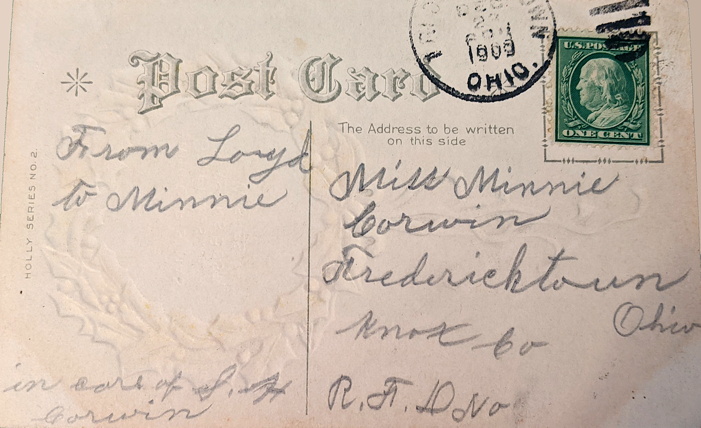 Post Card
1909
OHIO.
U.S. POSTAGE
ONE CENT
The Address to be written
on this side
HOLLY SERIES NO. 2.
From Loyd
to Minnie
Miss Minnie
Corwin
Fredericktown
Ohio
Knox Co
R.F.D No
in care of S. H
Corwin